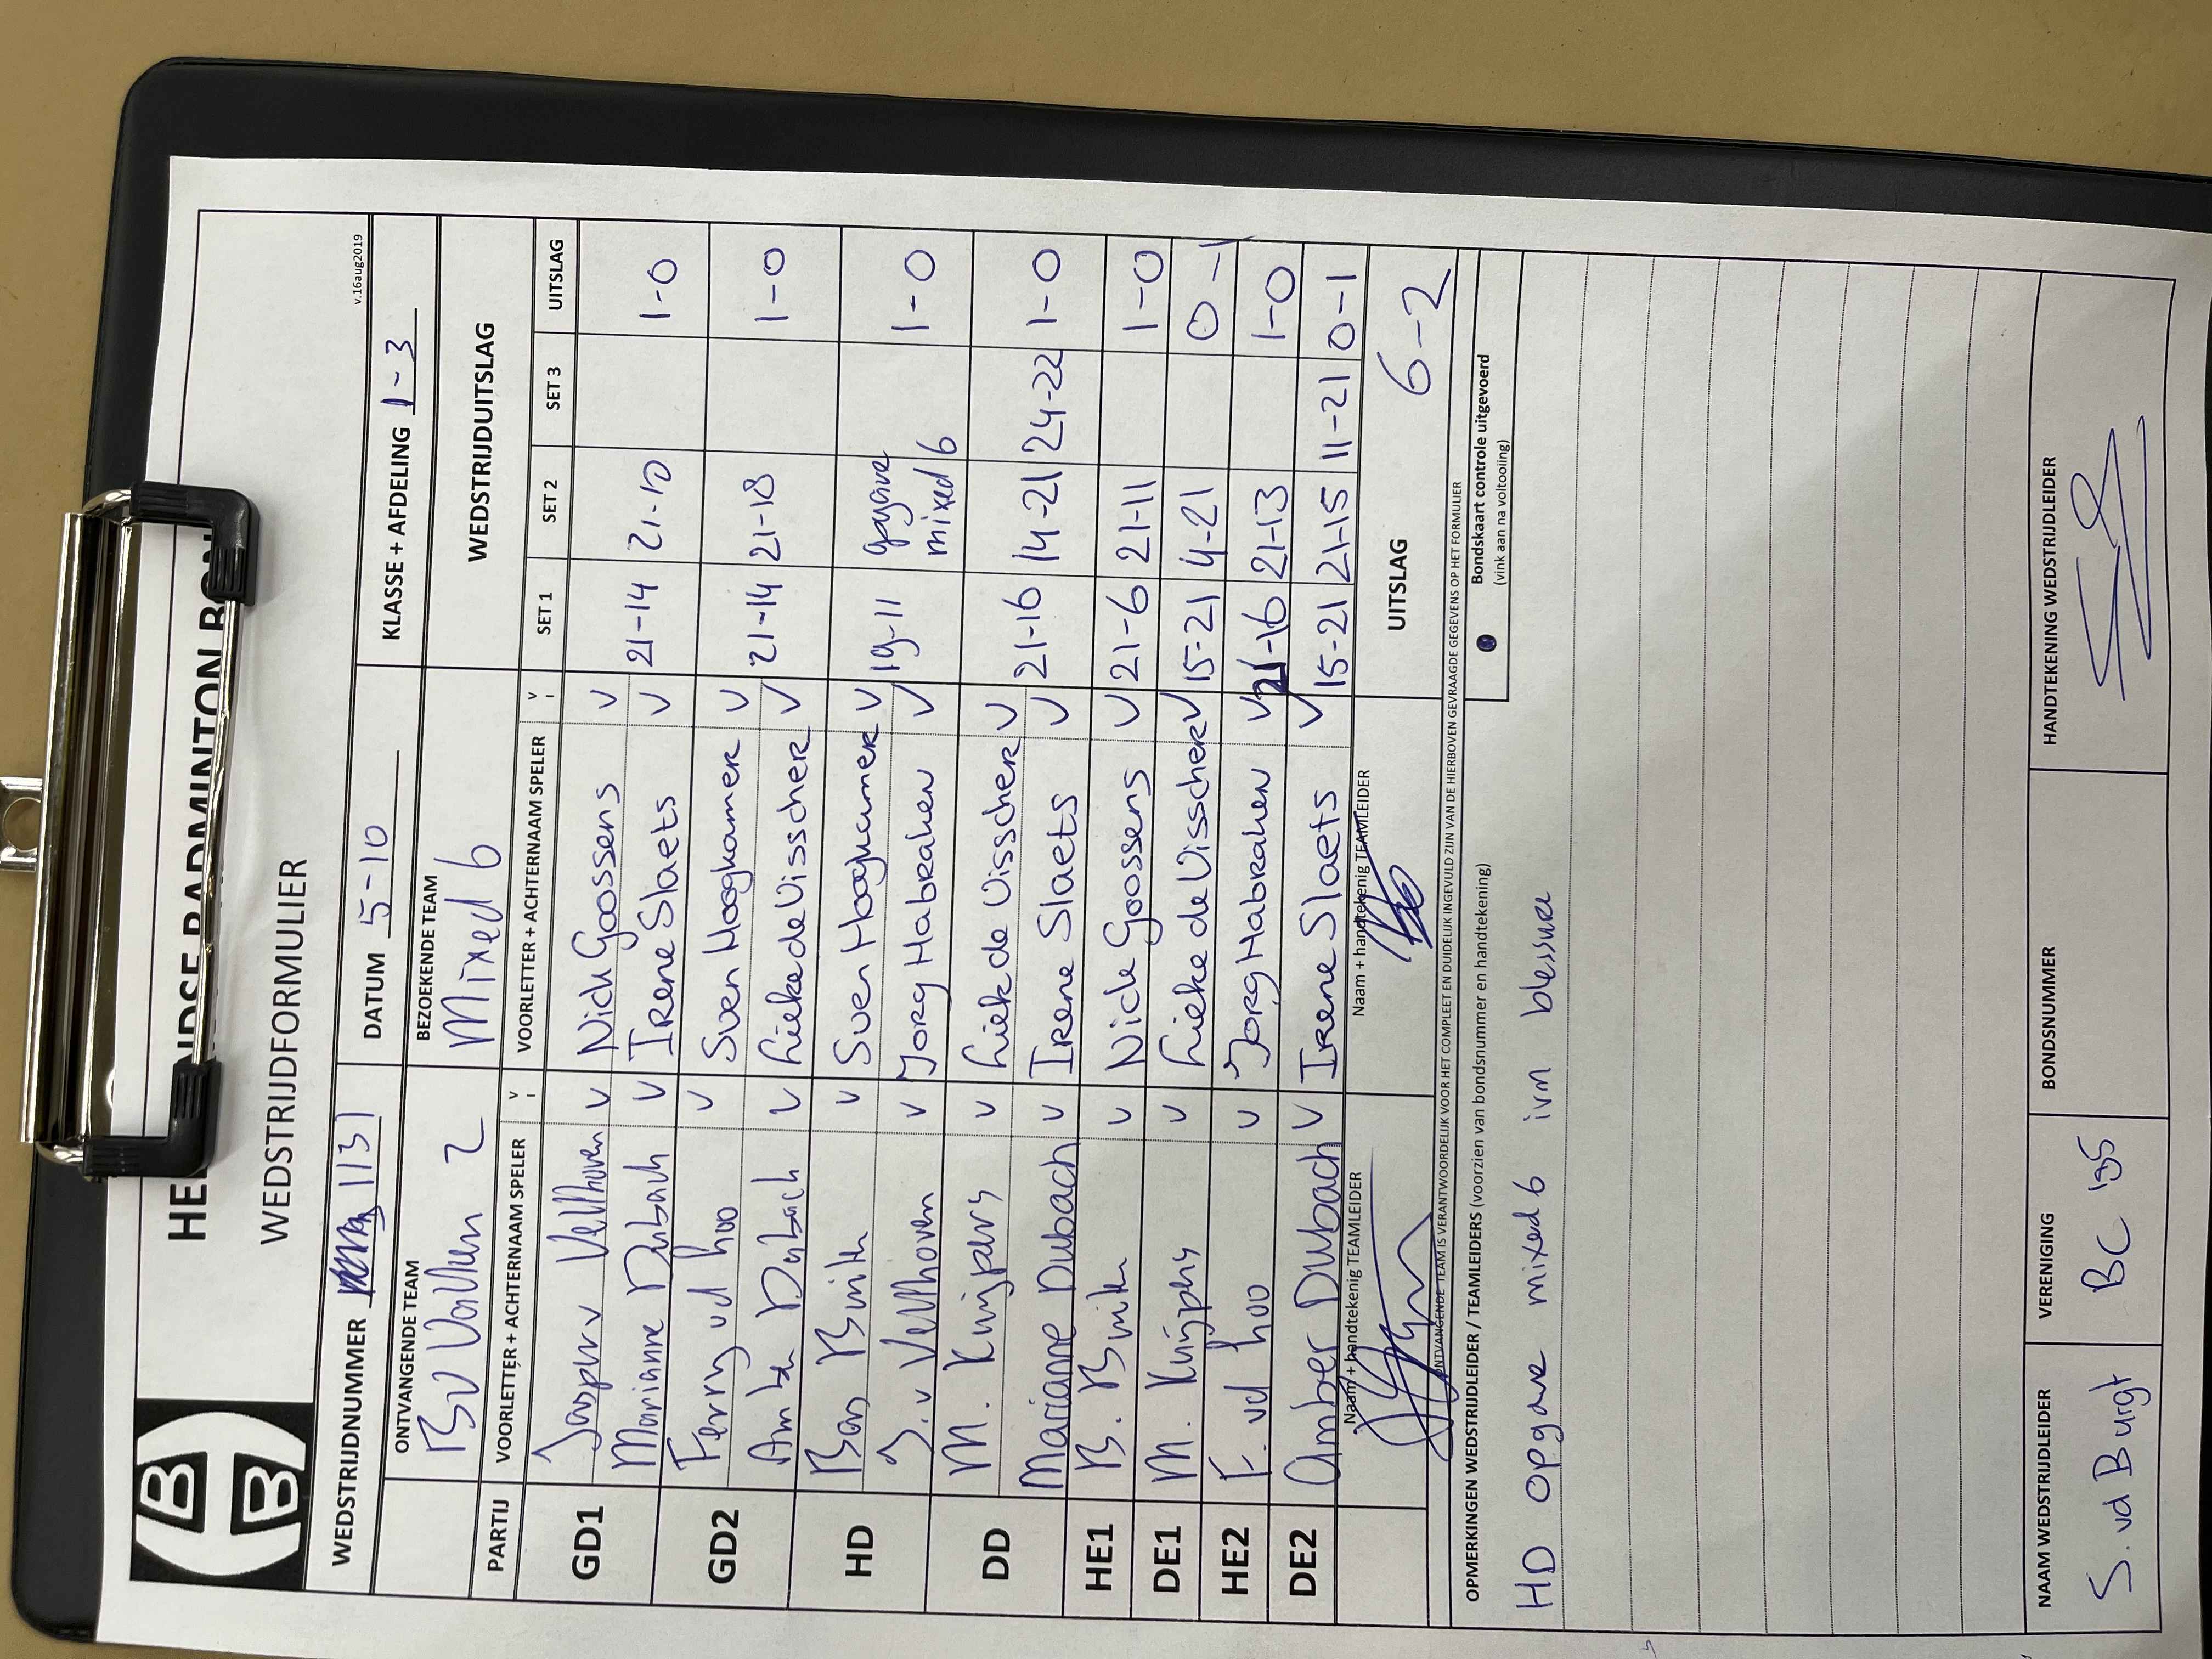 HELMONDSE BADMINTON BOND
WEDSTRIJDFORMULIER
v.16aug2019
WEDSTRIJDNUMMER 1131 DATUM 5-10 KLASSE + AFDELING 1-3
ONTVANGENDE TEAM BEZOEKENDE TEAM WEDSTRIJDUITSLAG
BV Vallen 2 Mixed 6
PARTIJ VOORLETTER + ACHTERNAAM SPELER V VOORLETTER + ACHTERNAAM SPELER V SET 1 SET 2 SET 3 UITSLAG
GD1 Jasper v Velthoven V Nick Goossens V
Marianne Dubach V Irene Slaets V 21-14 21-10 1-0
GD2 Ferry vd hoo V Sven Hoogkamer V
Amber Dubach V Lieke de Visscher V 21-14 21-18 1-0
HD Bas Smith V Sven Hoogkamer V 19-11 opgave 1-0
J. v Velthoven V Jorg Habraken V mixed 6
DD M. Knijpers V Lieke de Visscher V
Marianne Dubach V Irene Slaets V 21-16 14-21 24-22 1-0
HE1 B. Smith V Nick Goossens V 21-6 21-11 1-0
DE1 M. Knijpers V Lieke de Visscher V 15-21 4-21 0-1
HE2 F. vd hoo V Jorg Habraken V 21-16 21-13 1-0
DE2 Amber Dubach V Irene Slaets V 15-21 21-15 11-21 0-1
Naam + handtekenig TEAMLEIDER Naam + handtekenig TEAMLEIDER UITSLAG 6-2
ONTVANGENDE TEAM IS VERANTWOORDELIJK VOOR HET COMPLEET EN DUIDELIJK INGEVULD ZIJN VAN DE HIERBOVEN GEVRAAGDE GEGEVENS OP HET FORMULIER
OPMERKINGEN WEDSTRIJDLEIDER / TEAMLEIDERS (voorzien van bondsnummer en handtekening) Bondskaart controle uitgevoerd
(vink aan na voltooiing)
HD opgave mixed 6 ivm blessure
NAAM WEDSTRIJDLEIDER VERENIGING BONDSNUMMER HANDTEKENING WEDSTRIJDLEIDER
S. vd Burgt BC '85